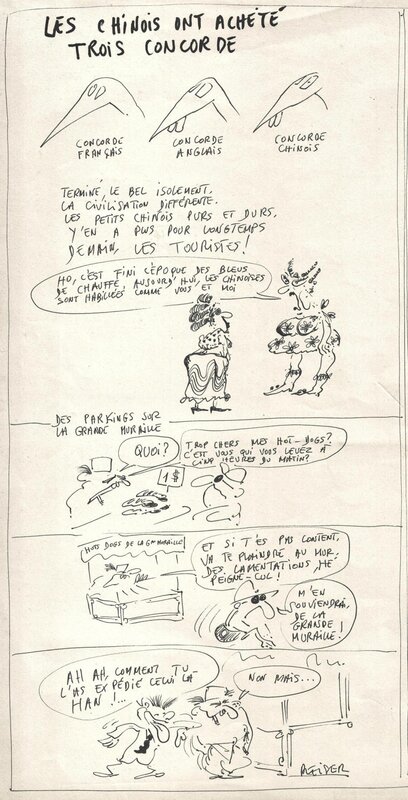 LES CHINOIS ONT ACHETÉ
TROIS CONCORDE
CONCORDE
FRANÇAIS
CONCORDE
ANGLAIS
CONCORDE
CHINOIS
TERMINÉ, LE BEL ISOLEMENT.
LA CIVILISATION DIFFÉRENTE.
LES PETITS CHINOIS PURS ET DURS,
Y'EN A PLUS POUR LONGTEMPS
DEMAIN, LES TOURISTES!
HO, C'EST FINI L'ÉPOQUE DES BLEUS
DE CHAUFFE, AUJOURD'HUI, LES CHINOISES
SONT HABILLÉES COMME VOUS ET MOI
DES PARKINGS SUR
LA GRANDE MURAILLE
QUOI?
TROP CHERS MES HOT-DOGS?
C'EST VOUS QUI VOUS LEVEZ À
CINQ HEURES DU MATIN?
1$
HOTS DOGS DE LA GDE MURAILLE
ET SI T'ES PAS CONTENT,
VA TE PLAINDRE AU MUR
DES LAMENTATIONS, HÉ
PEIGNE-CUL!
M'EN
SOUVIENDRAI,
DE LA
GRANDE
MURAILLE!
AH AH, COMMENT TU
L'AS EXPÉDIÉ CELUI LÀ
HAN!...
NON MAIS...
REISER